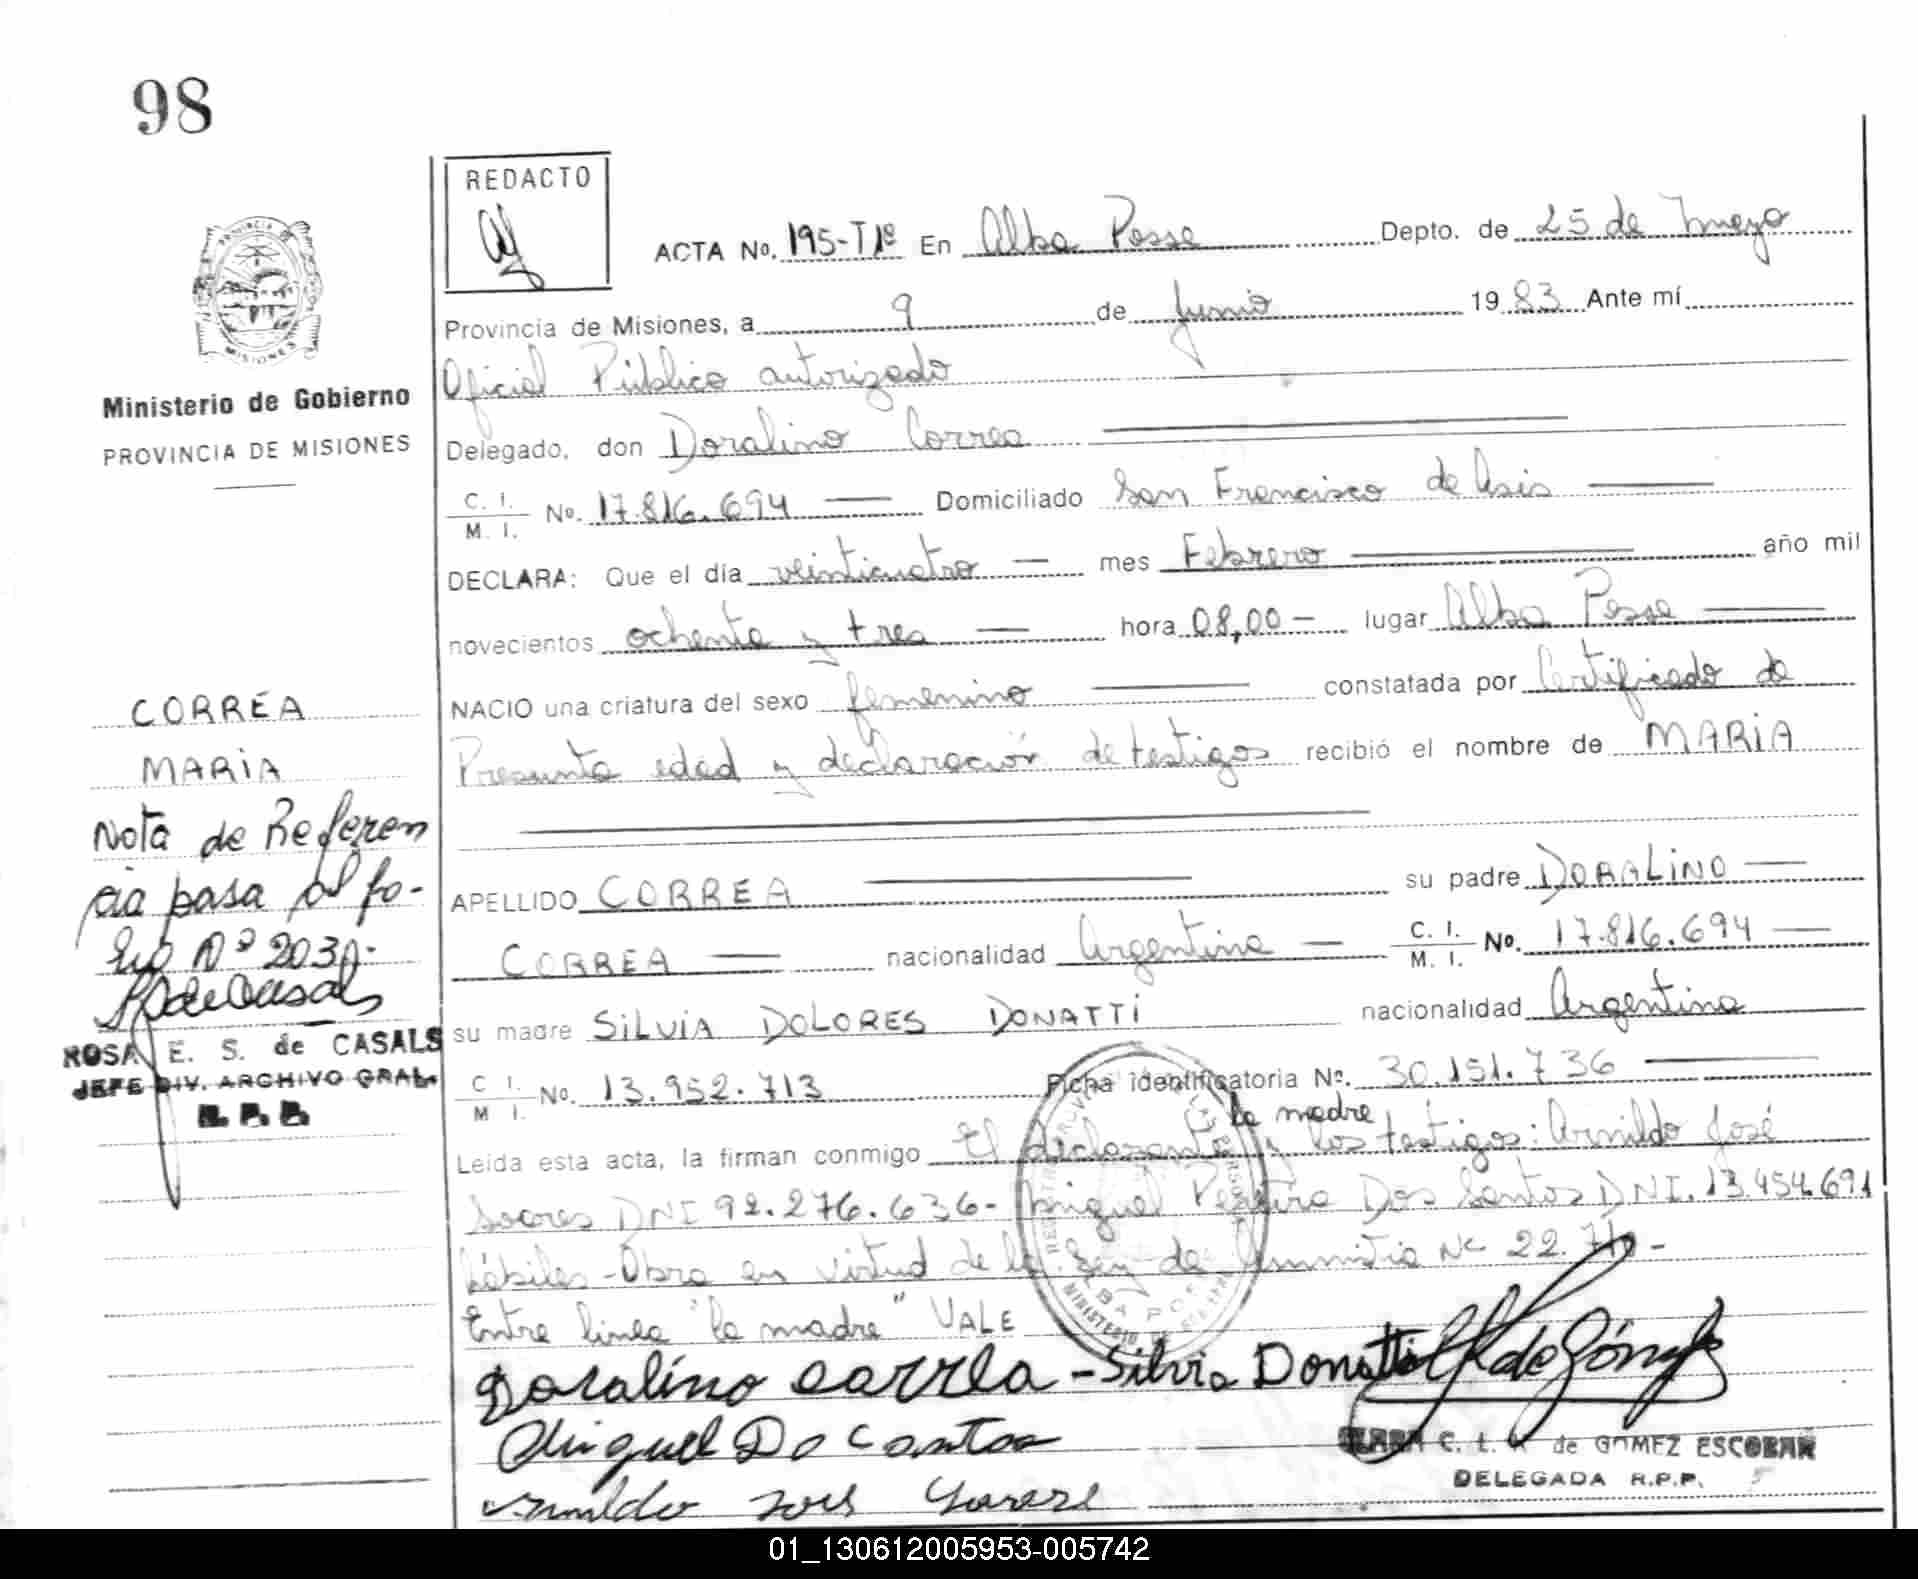 98
REDACTO
ACTA No. 195-T1º En Alba Posse Depto. de 25 de Mayo
Provincia de Misiones, a 9 de Junio 1983 Ante mí
Oficial Público autorizado
Delegado, don Doralino Correa
C. I. / M. I. No. 17.816.694 Domiciliado San Francisco de Asis
DECLARA: Que el día veinticuatro mes Febrero año mil
novecientos ochenta y tres hora 08,00 lugar Alba Posse
NACIO una criatura del sexo femenino constatada por Certificado de
Presunta edad y declaración de testigos recibió el nombre de MARIA
APELLIDO CORREA su padre DORALINO
CORREA nacionalidad Argentina C. I. / M. I. No. 17.816.694
su madre SILVIA DOLORES DONATTI nacionalidad Argentina
C I. / M I. No. 13.952.713 Ficha identificatoria No. 30.151.736
la madre
Leída esta acta, la firman conmigo El declarante y los testigos: Arnildo José
Soares DNI 92.276.636- Miguel Pereira Dos Santos DNI. 13.454.691
hábiles - Obra en virtud de la Ley de Amnistia Nº 22.
Entre linea "la madre" VALE
Doralino Correa - Silvia Donatti
Miguel Do Santos
Arnildo
C. L. de GOMEZ ESCOBAR
DELEGADA R.P.P.
PROVINCIA
MISIONES
Ministerio de Gobierno
PROVINCIA DE MISIONES
CORREA
MARIA
Nota de Referen
cia pasa al fo-
lio Nº 203
R S de Casals
ROSA E. S. de CASALS
JEFE DIV. ARCHIVO GRAL.
R. P. P.
MINISTERIO DE
01_130612005953-005742